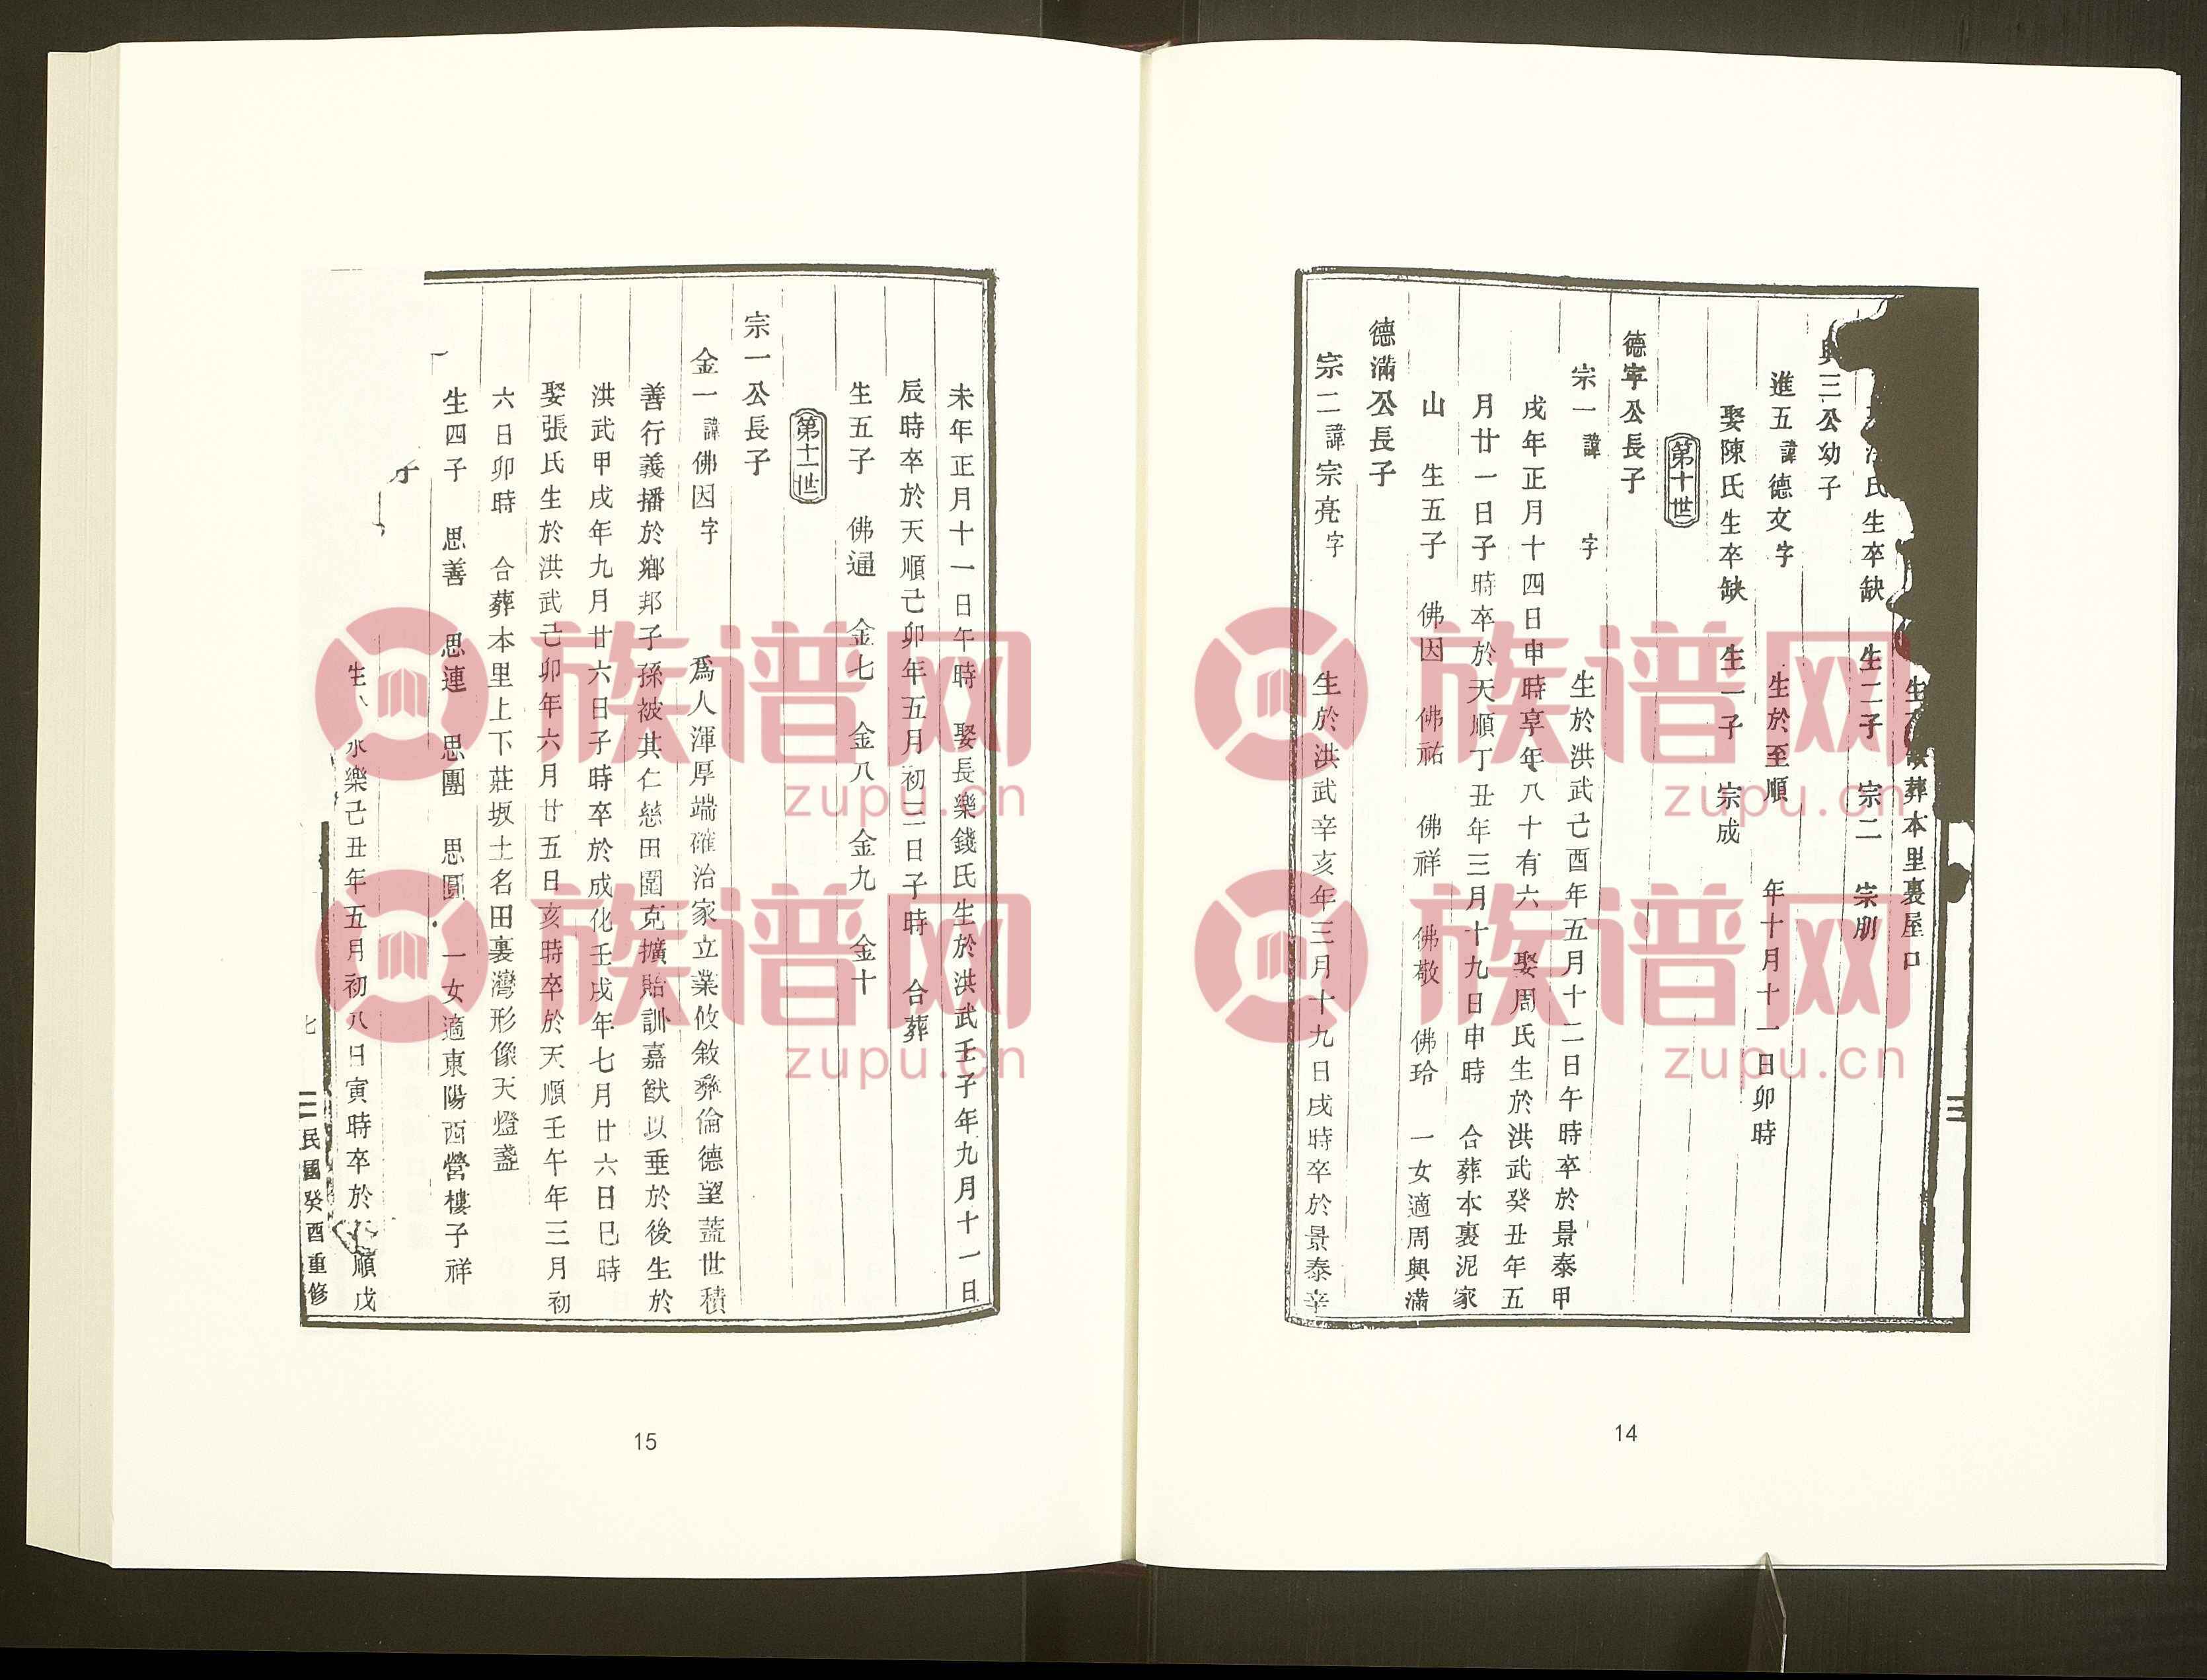 葬本里裏屋口
氏生卒缺 生二子 宗二 宗朋
興三公幼子
進五諱德文字 生於至順 年十月十一日卯時
娶陳氏生卒缺 生一子 宗成
第十世
德寧公長子
宗一諱 字 生於洪武己酉年五月十二日午時卒於景泰甲
戌年正月十四日申時享年八十有六 娶周氏生於洪武癸丑年五
月廿一日子時卒於天順丁丑年三月十九日申時 合葬本裏泥家
山 生五子 佛因 佛祐 佛祥 佛敬 佛玲 一女適周興滿
德滿公長子
宗二諱宗亮字 生於洪武辛亥年三月十九日戌時卒於景泰辛
14
未年正月十一日午時 娶長樂錢氏生於洪武壬子年九月十一日
辰時卒於天順己卯年五月初三日子時 合葬
生五子 佛通 金七 金八 金九 金十
第十一世
宗一公長子
金一諱佛因字 爲人渾厚端確治家立業攸敘彝倫德望蓋世積
善行義播於鄉邦子孫被其仁慈田園克擴貽訓嘉猷以垂於後生於
洪武甲戌年九月廿六日子時卒於成化壬戌年七月廿六日巳時
娶張氏生於洪武己卯年六月廿五日亥時卒於天順壬午年三月初
六日卯時 合葬本里上下莊坂土名田裏灣形像天燈盞
生四子 思善 思連 思團 思圓 一女適東陽西營樓子祥
子
生 永樂己丑年五月初八日寅時卒於 順戊
七 民國癸酉重修
15
族谱网
zupu.cn
族谱网
zupu.cn
族谱网
zupu.cn
族谱网
zupu.cn